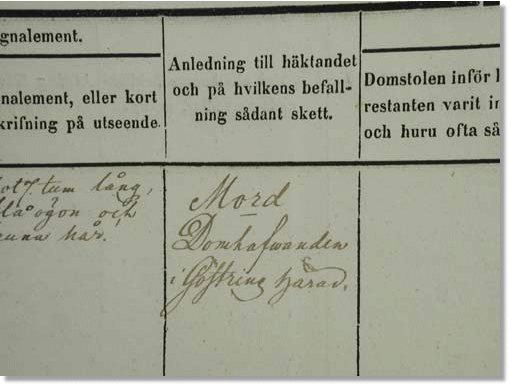 gnalement.
Anledning till häktandet
och på hvilkens befall-
ning sådant skett.
nalement, eller kort
krifning på utseende.
Domstolen inför
restanten varit in
och huru ofta så
7 tum lång,
blå ögon och
bruna hår.
Mord
Domhafwanden
i Göstring härad.